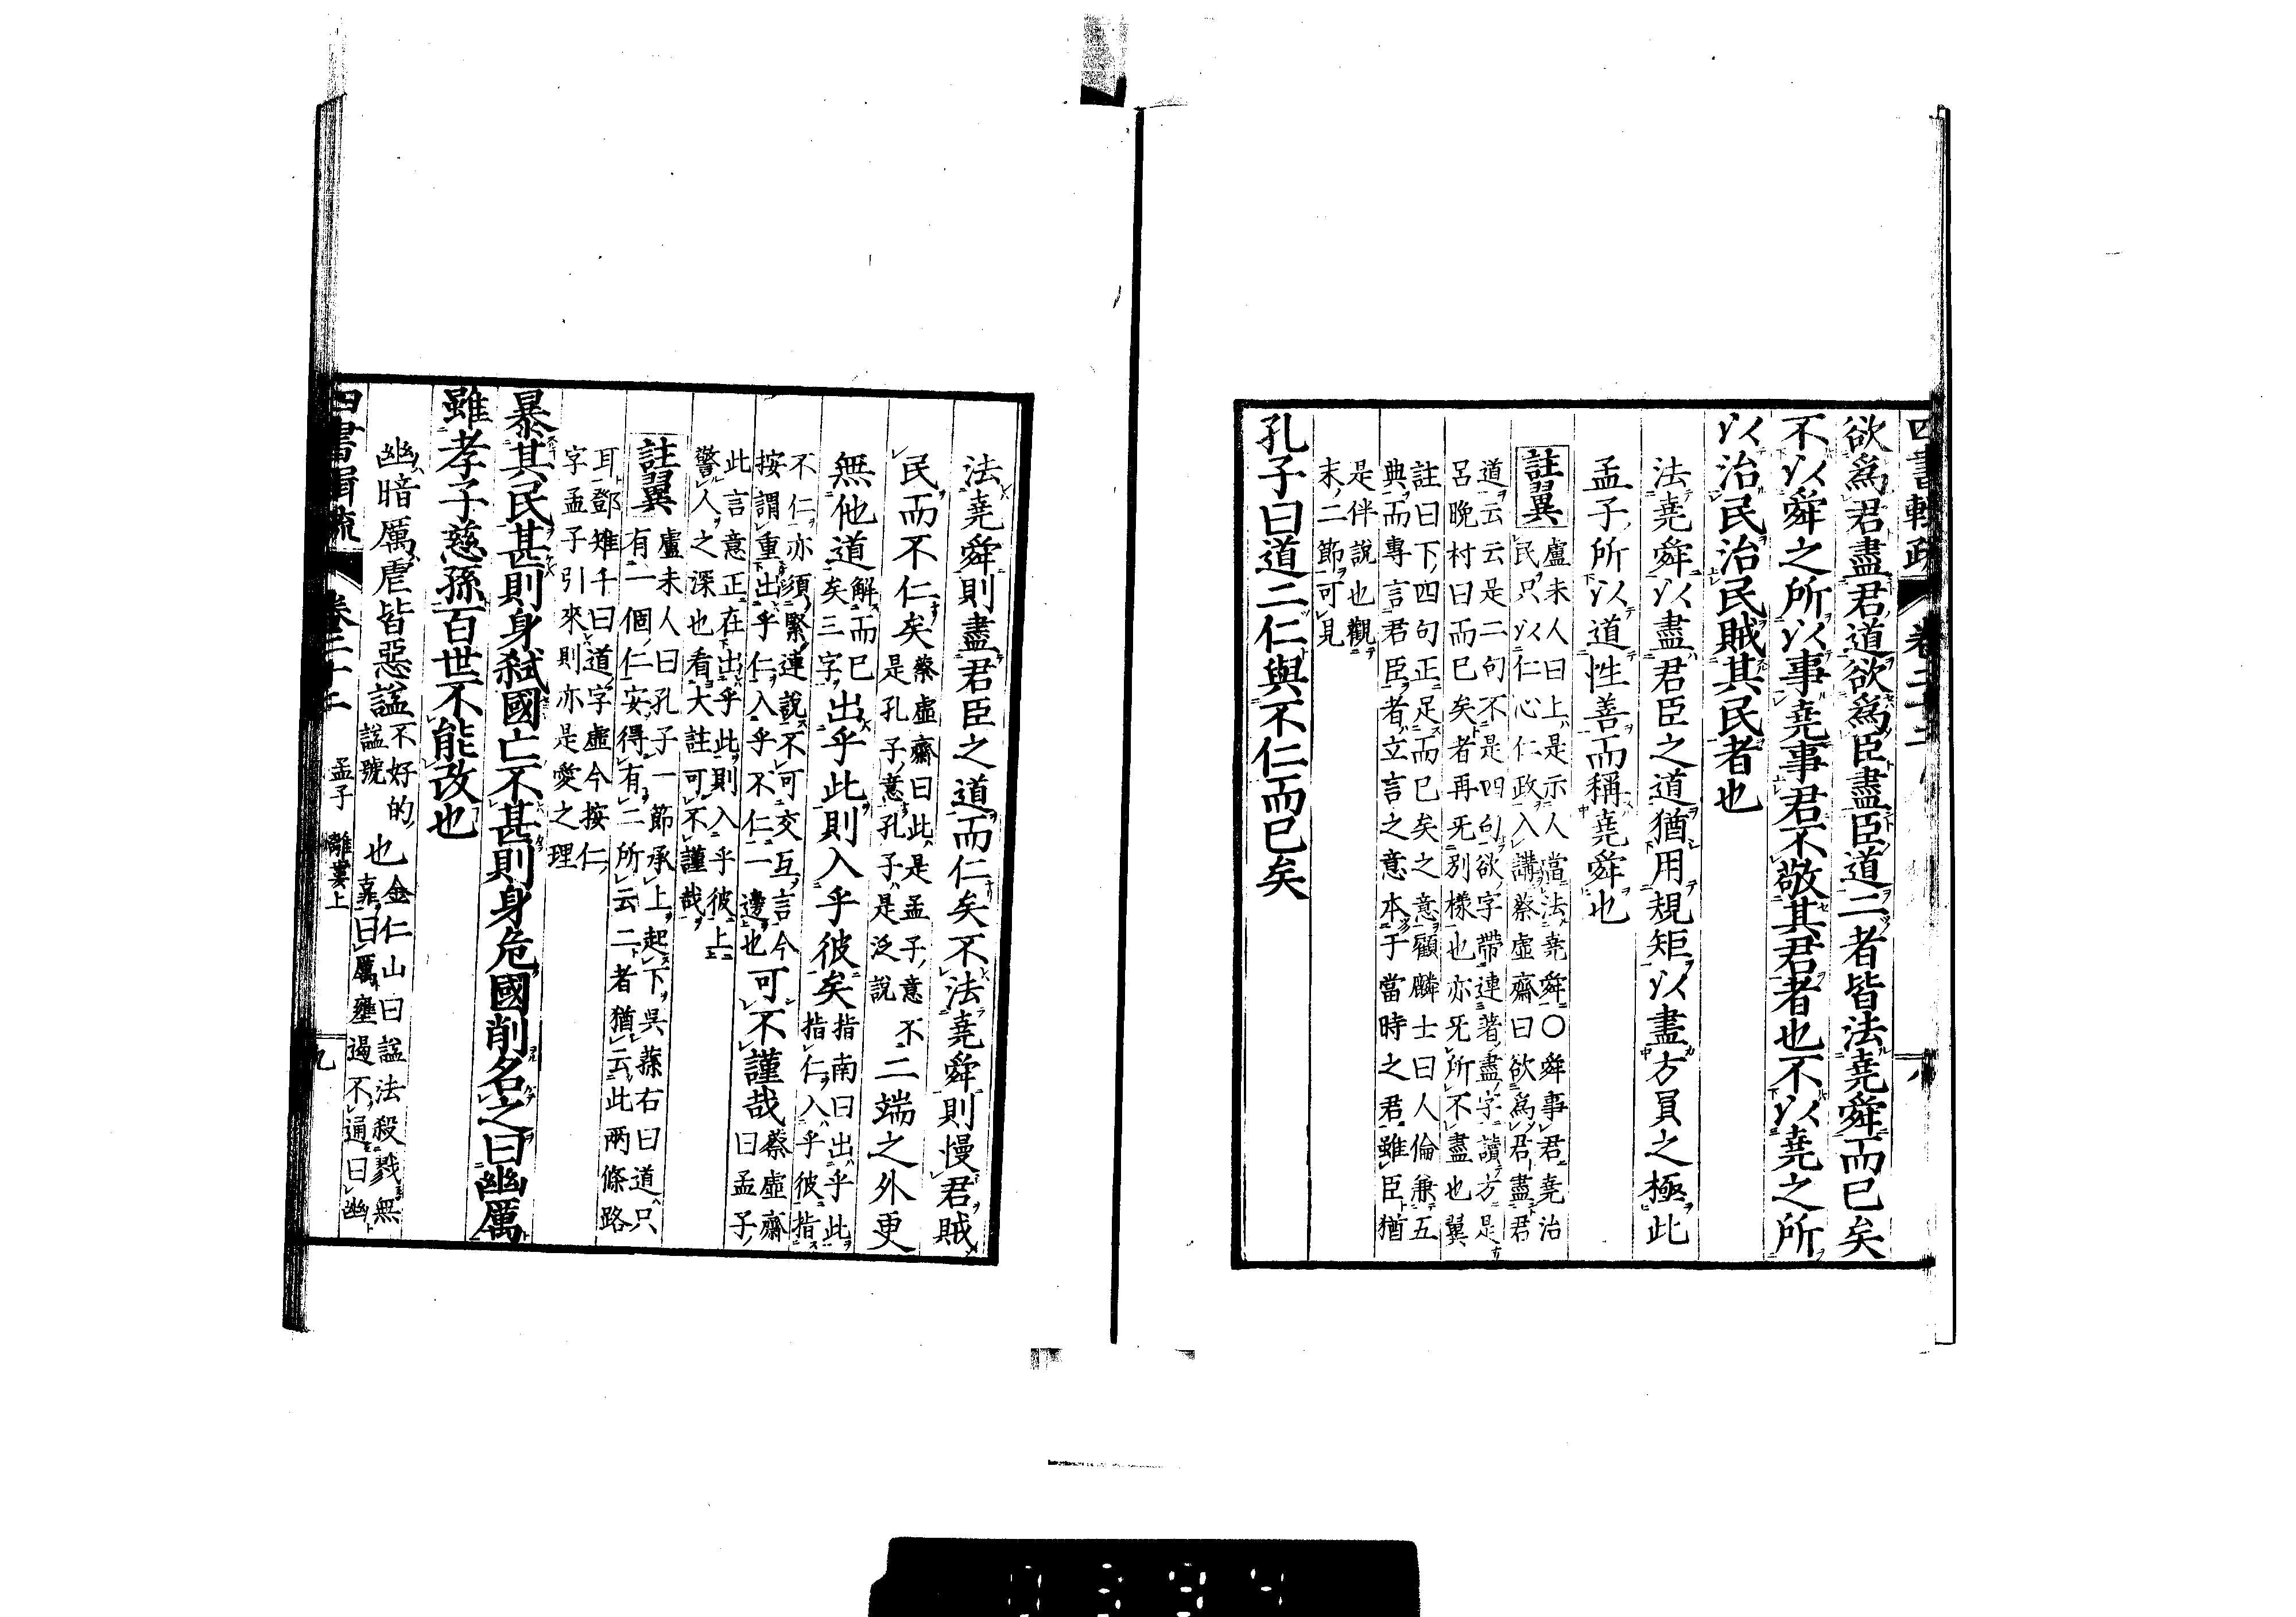 四書輯疏 卷二十二 八
欲爲君盡君道欲爲臣盡臣道二者皆法堯舜而已矣
不以舜之所以事堯事君不敬其君者也不以堯之所
以治民治民賊其民者也
法堯舜以盡君臣之道猶用規矩以盡方員之極此
孟子所以道性善而稱堯舜也
註翼 盧未人曰上是示人當法堯舜○舜事君堯治
民只以仁心仁政入講蔡虛齋曰欲爲君盡君
道云云是二句不是四句欲字帶連著盡字讀方是
呂晚村曰而已矣者再旡別樣也亦旡所不盡也翼
註曰下四句正足而已矣之意顧麟士曰人倫兼五
典而專言君臣者立言之意本于當時之君雖臣猶
是伴說也觀
末二節可見
孔子曰道二仁與不仁而已矣
法堯舜則盡君臣之道而仁矣不法堯舜則慢君賊
民而不仁矣 蔡虛齋曰此是孟子意不是孔子意孔子是泛說 二端之外更
無他道 解而已矣三字 出乎此則入乎彼矣 指南曰出乎此指仁入乎彼指
不仁亦須緊連說不可交互言今
按謂重出乎仁入乎不仁一邊也 可不謹哉 蔡虛齋曰孟子
此言意正在出乎此則入乎彼上
警人之深也看大註可不謹哉
註翼 盧未人曰孔子一節承上起下吳蓀右曰道只
有一個仁安得有二所云二者猶云此兩條路
耳鄧雉千曰道字虛今按仁
字孟子引來則亦是愛之理
暴其民甚則身弑國亡不甚則身危國削名之曰幽厲
雖孝子慈孫百世不能改也
幽暗厲虐皆惡謚 不好的謚號 也 金仁山曰謚法殺戮無辜曰厲壅遏不通曰幽
四書輯疏 卷二十二 孟子 離婁上 九